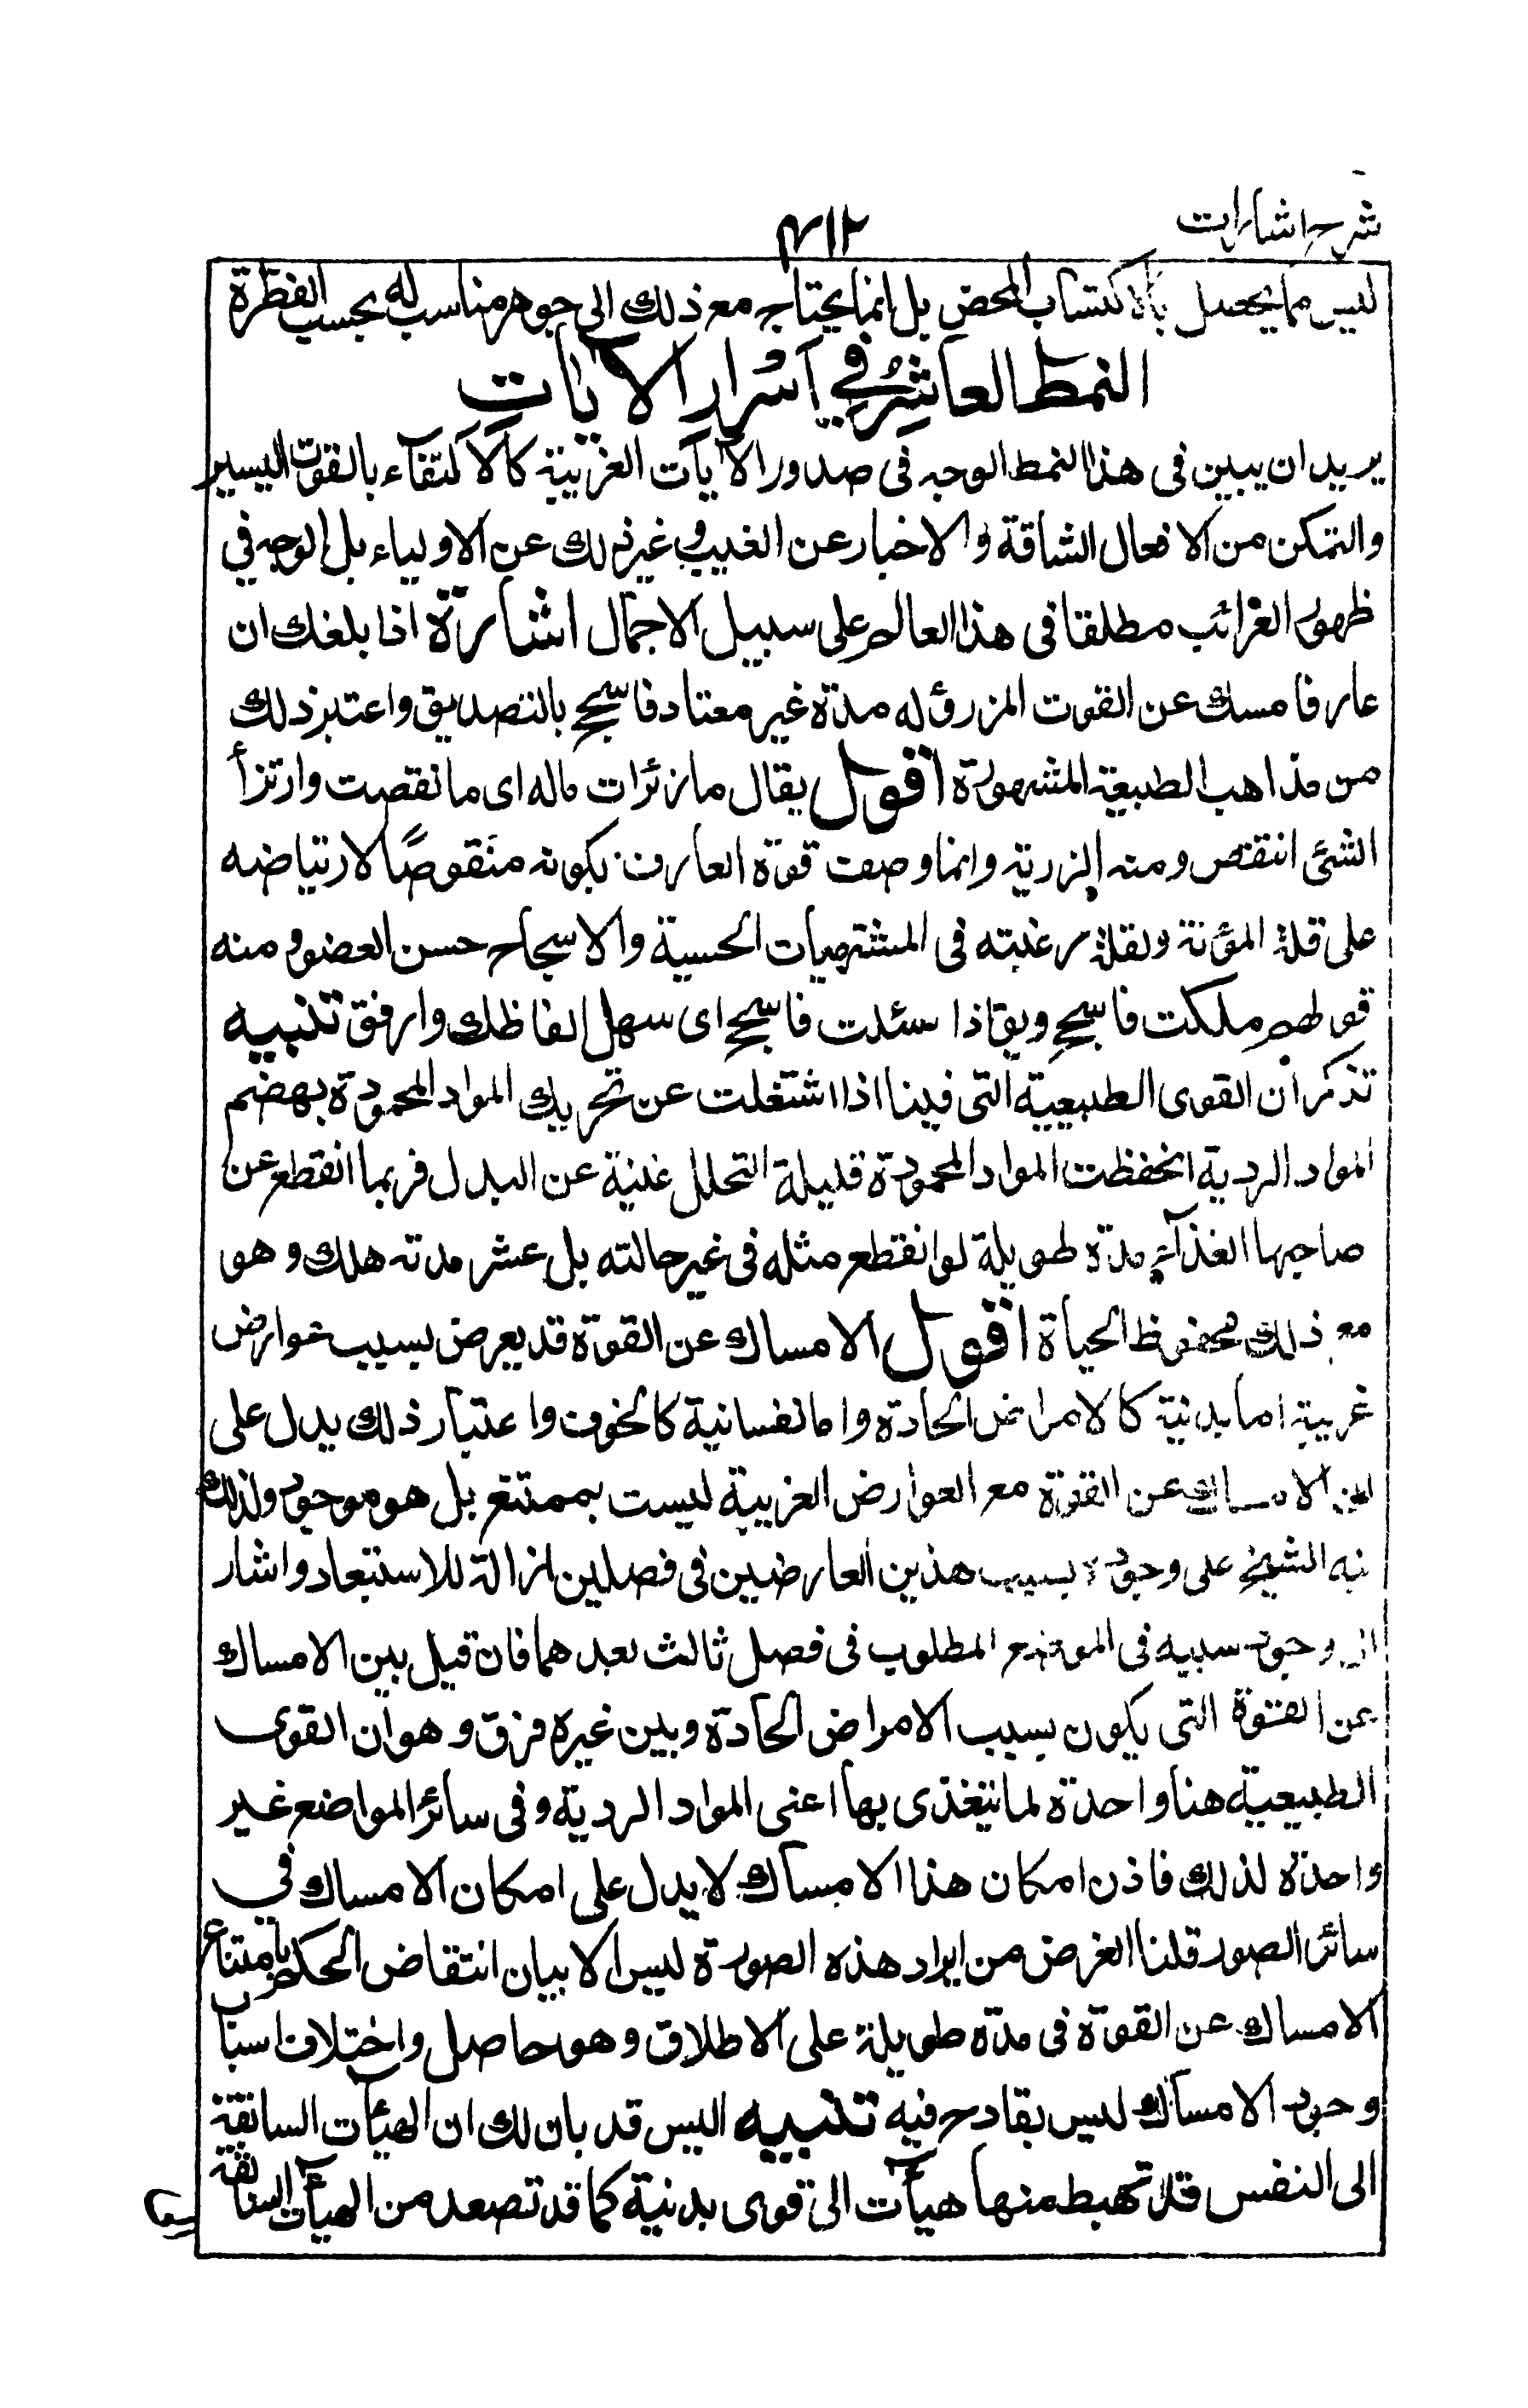 شرح اشارات
۴۱۲
ليس مما يحصل بالاكتساب المحض بل انما يحتاج مع ذلك الى جوهر مناسب له بحسب الفطرة
النمط العاشر في اسرار الآيات
يريد ان يبين فى هذا النمط الوجه فى صدور الآيات الغريبة كالاكتفاء بالقوت اليسير
والتمكن من الافعال الشاقة والاخبار عن الغيب وغير ذلك عن الاولياء بل الوجه في
ظهور الغرائب مطلقا فى هذا العالم على سبيل الاجمال اشارة اذا بلغك ان
عارفا مسك عن القوت المزرؤ له مدة غير معتاد فاسجح بالتصديق واعتبر ذلك
من مذاهب الطبيعة المشهورة اقول يقال مارزئرات ماله اى ما نقصت وارتزأ
الشئ انتقص ومنه الرزية وانما وصفت قوة العارف بكونه منقوصًا لارتياضه
على قلة المؤنة ولقلة رغبته فى المشتهيات الحسية والاسجاح حسن العضو ومنه
قولهم ملكت فاسجح ويق اذا سئلت فاسجح اى سهل الفاظك وارفق تنبيه
تذكر ان القوى الطبيعية التى فينا اذا اشتغلت عن تحريك المواد المحمودة بهضم
المواد الردية انحفظت المواد المحمودة قليلة التحلل غنية عن البدل فربما انقطع عن
صاحبها الغذآء مدة طويلة لو انقطع مثله فى غير حالته بل عشر مدته هلك وهو
مع ذلك محفوظ الحياة اقول الامساك عن القوة قد يعرض بسبب عوارض
غريبة اما بدنية كالامراض الحادة واما نفسانية كالخوف واعتبار ذلك يدل على
ان الامساك عن القوة مع العوارض الغريبة ليست بممتنع بل هو موجود ولذلك
نبه الشيخ على وجوده بسبب هذين العارضين فى فصلين ازالة للاستبعاد واشار
الى وجود سببه فى الموضع المطلوب فى فصل ثالث بعدهما فان قيل بين الامساك
عن القوة التى يكون بسبب الامراض الحادة وبين غيره فرق وهو ان القوى
الطبيعية هنا واحدة لما تتغذى بها اعنى المواد الردية وفى سائر المواضع غير
واحدة لذلك فاذن امكان هذا الامساك لا يدل على امكان الامساك في
سائر الصور قلنا الغرض من ايراد هذه الصورة ليس الا بيان انتقاض الحكم بامتناع
الامساك عن القوة فى مدة طويلة على الاطلاق وهو حاصل واختلاف اسباب
وجود الامساك ليس بقادح فيه تنبيه اليس قد بان لك ان الهيآت السابقة
الى النفس قد تهبط منها هيآت الى قوى بدنية كما قد تصعد من الهيآت السابقة